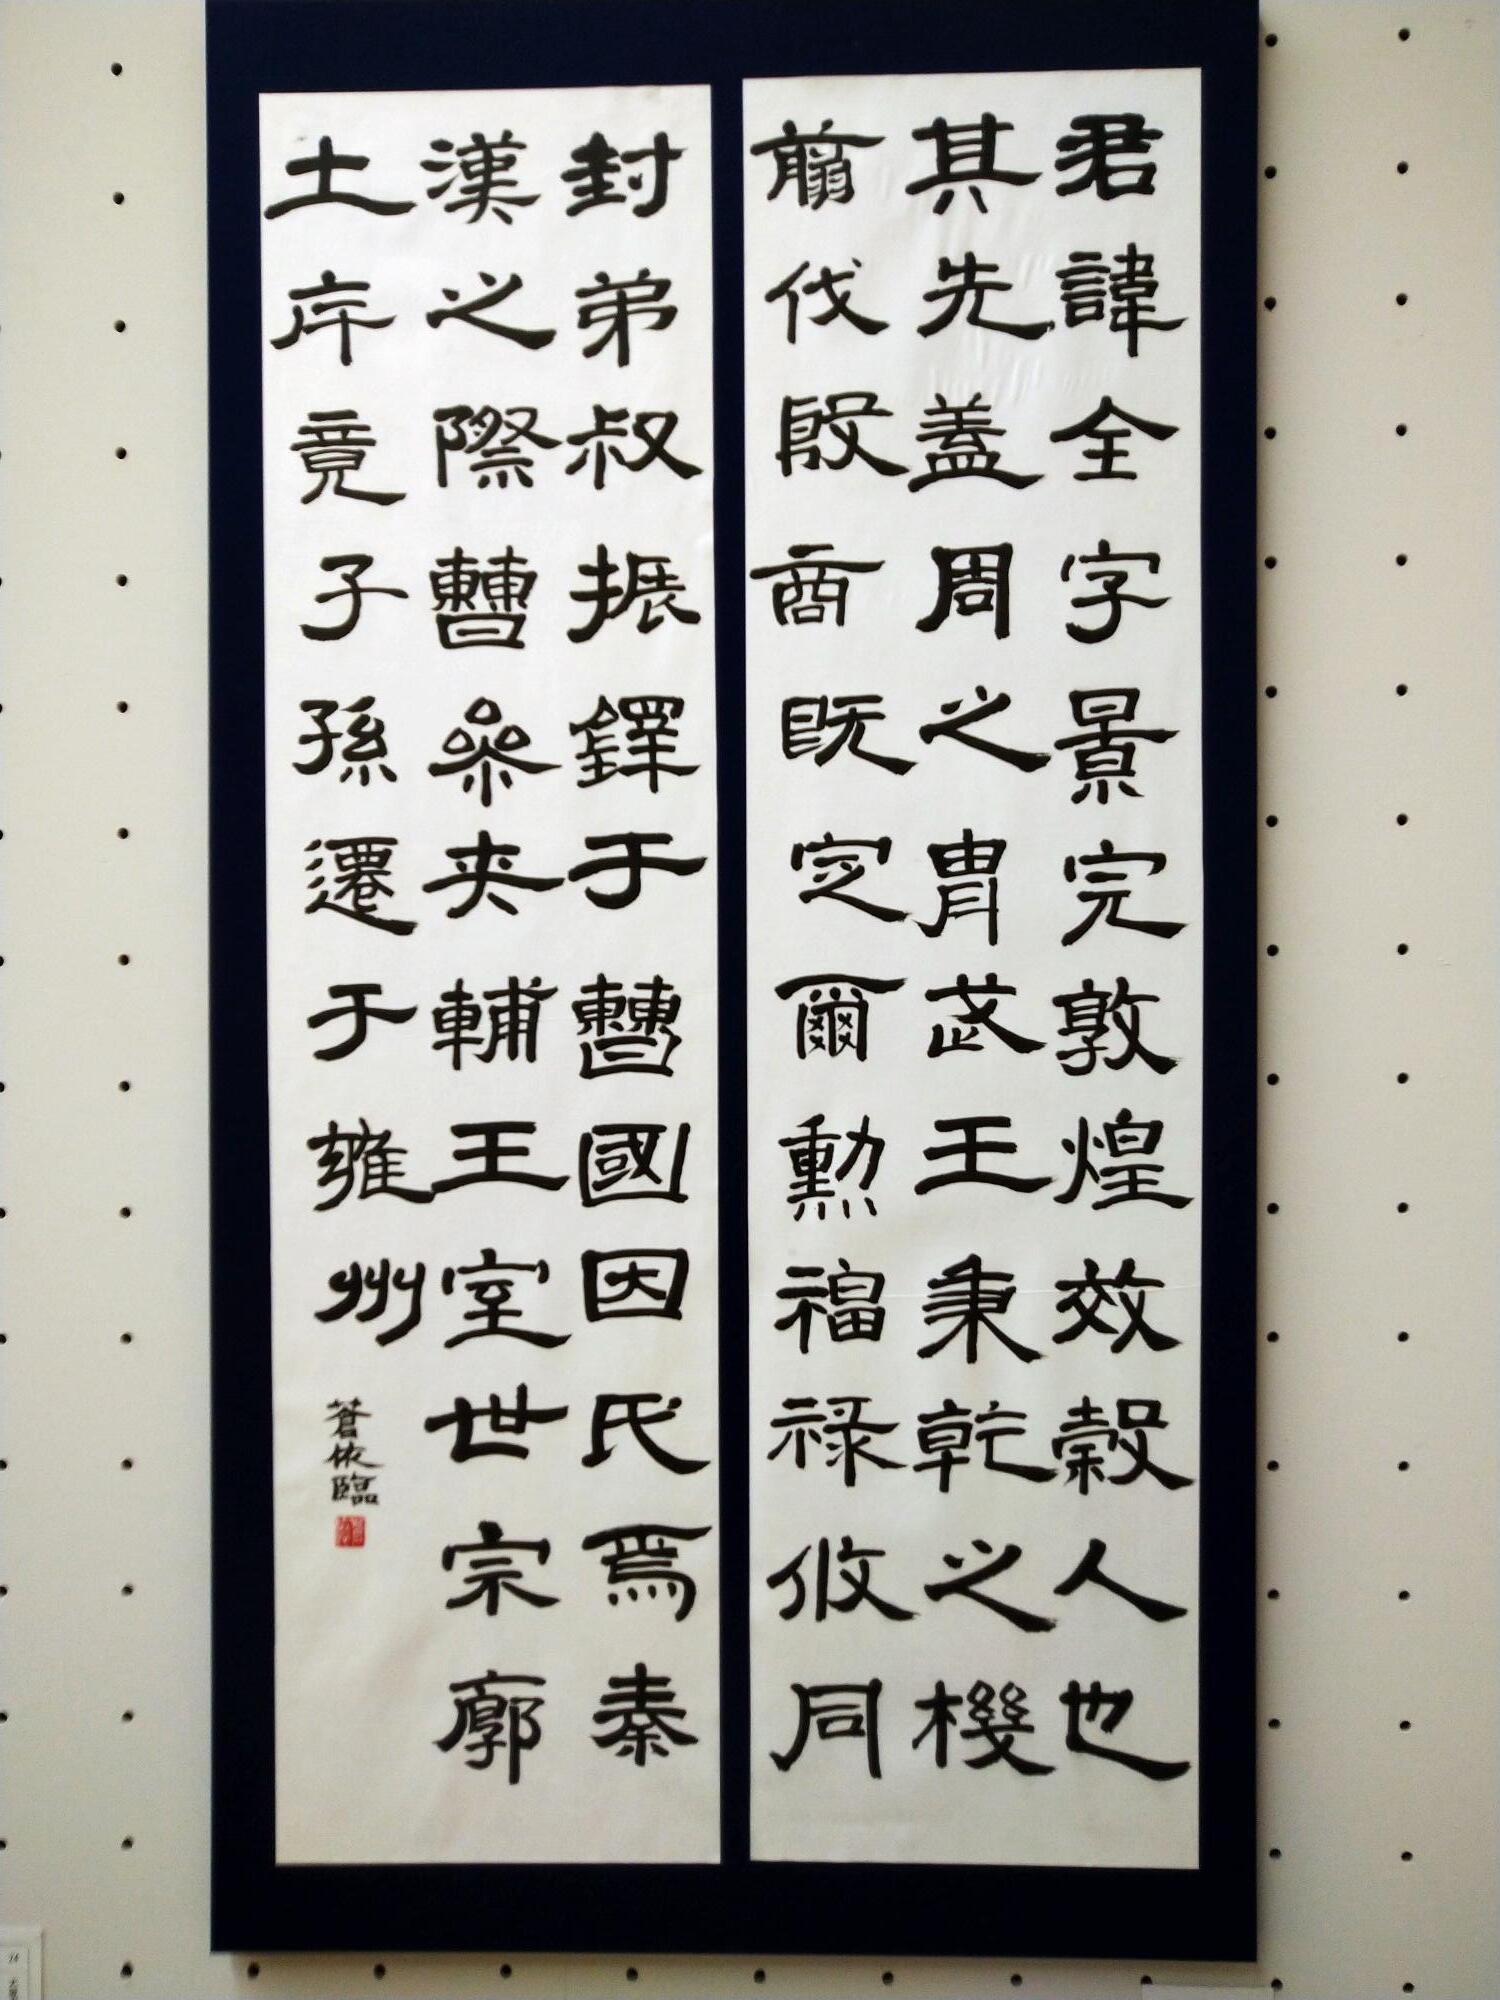 君諱全字景完敦煌效穀人也
其先蓋周之胄武王秉乾之機
翦伐殷商既定爾勲福祿攸同
封弟叔振鐸于曹國因氏焉秦
漢之際曹參夾輔王室世宗廓
土斥竟子孫遷于雍州
蒼依臨